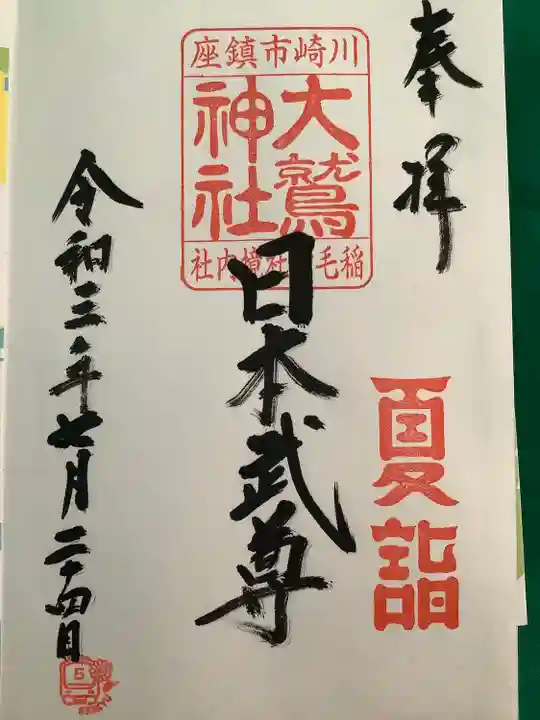 奉拝
夏詣
川崎市鎮座
大鷲神社
稲毛 社境内社
日本武尊
令和三年七月二十四日
5